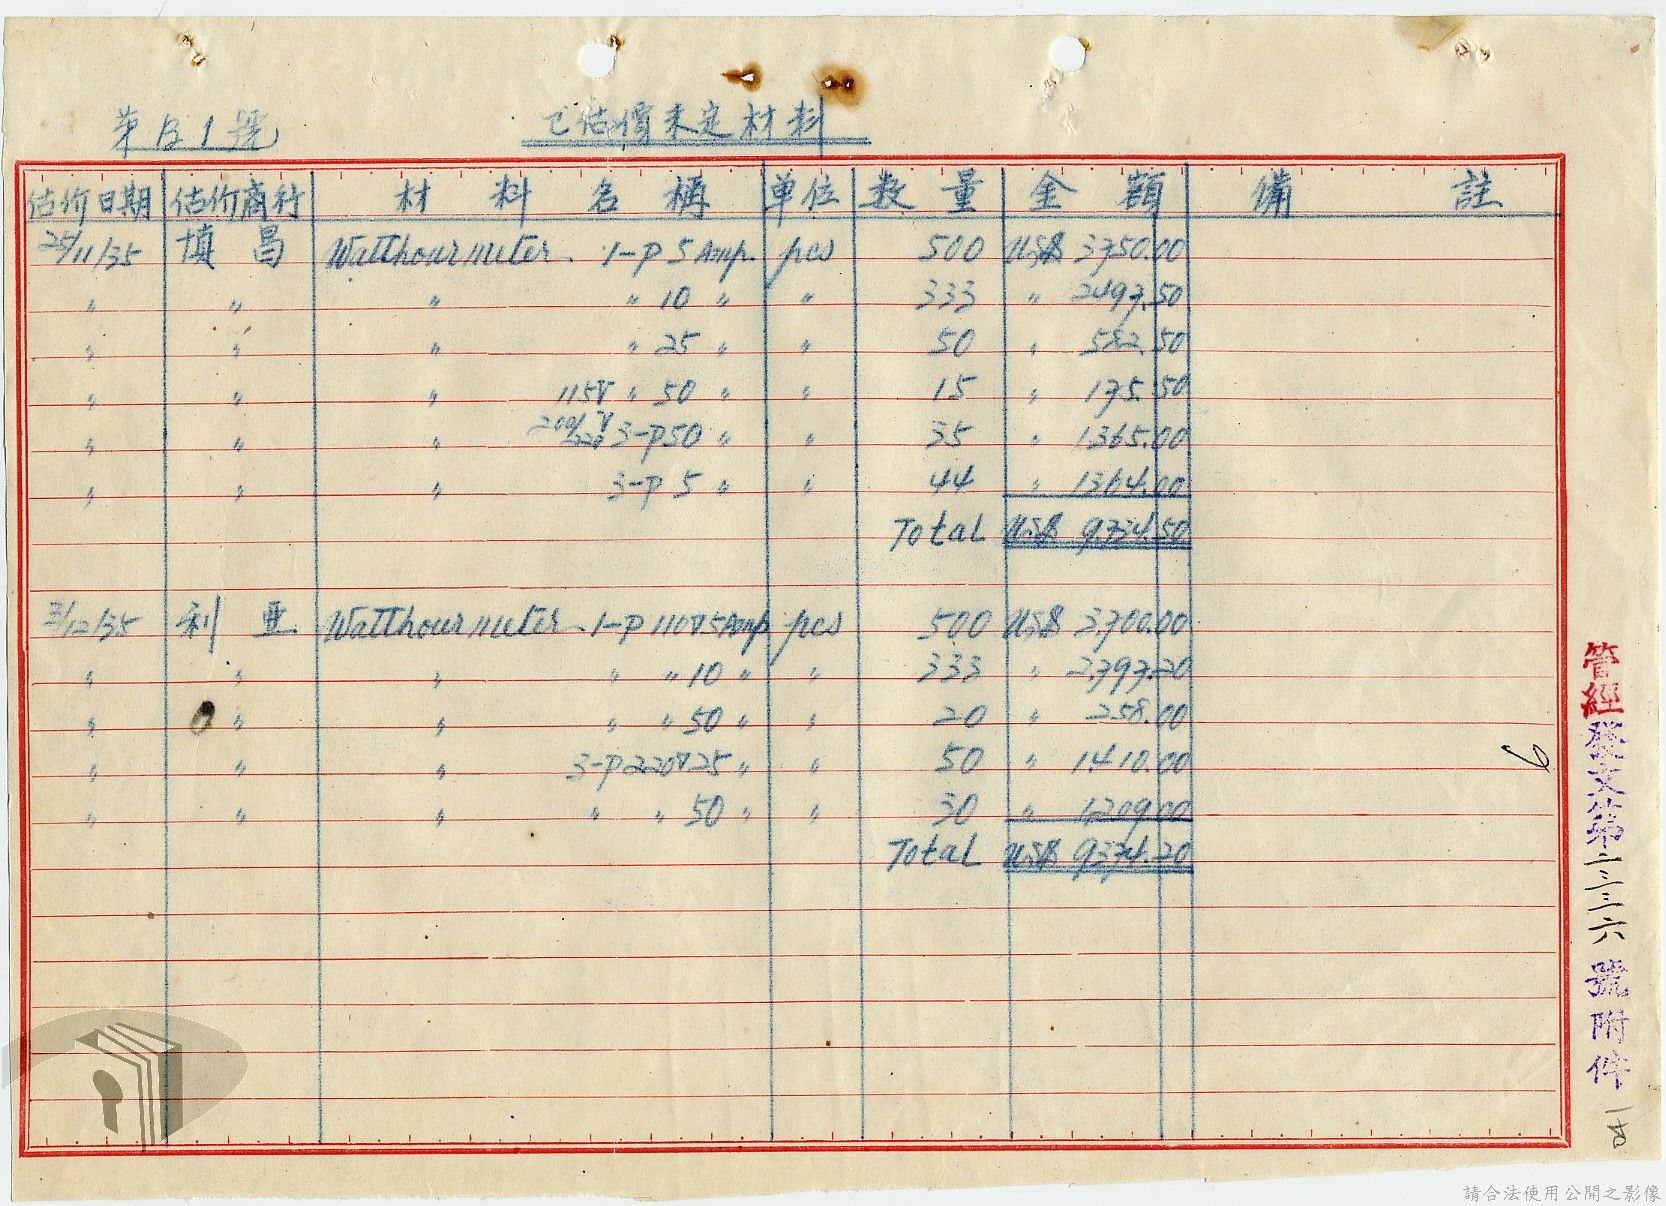 第 B 1 號
已估價未定材料
估价日期 估价商行 材料名稱 单位 数量 金額 備註
25/11/35 慎昌 Watthour meter 1-P 5 Amp. pcs 500 US$ 3,750.00
〃 〃 〃 〃 10 〃 〃 333 〃 2,497.50
〃 〃 〃 〃 25 〃 〃 50 〃 582.50
〃 〃 〃 115V 〃 50 〃 〃 15 〃 175.50
〃 〃 〃 200/220V 3-P 50 〃 〃 35 〃 1,365.00
〃 〃 〃 3-P 5 〃 〃 44 〃 1364.00
Total US$ 9,734.50
/12/35 利亚 Watthour meter 1-P 110V 5 Amp pcs 500 US$ 3,700.00
〃 〃 〃 〃 〃 10 〃 〃 333 〃 2,797.20
〃 〃 〃 〃 〃 50 〃 〃 20 〃 258.00
〃 〃 〃 3-P 220V 25 〃 〃 50 〃 1,410.00
〃 〃 〃 〃 〃 50 〃 〃 30 〃 1,209.00
Total US$ 9,374.20
6
管經發文第二三三六號附件
請合法使用公開之影像